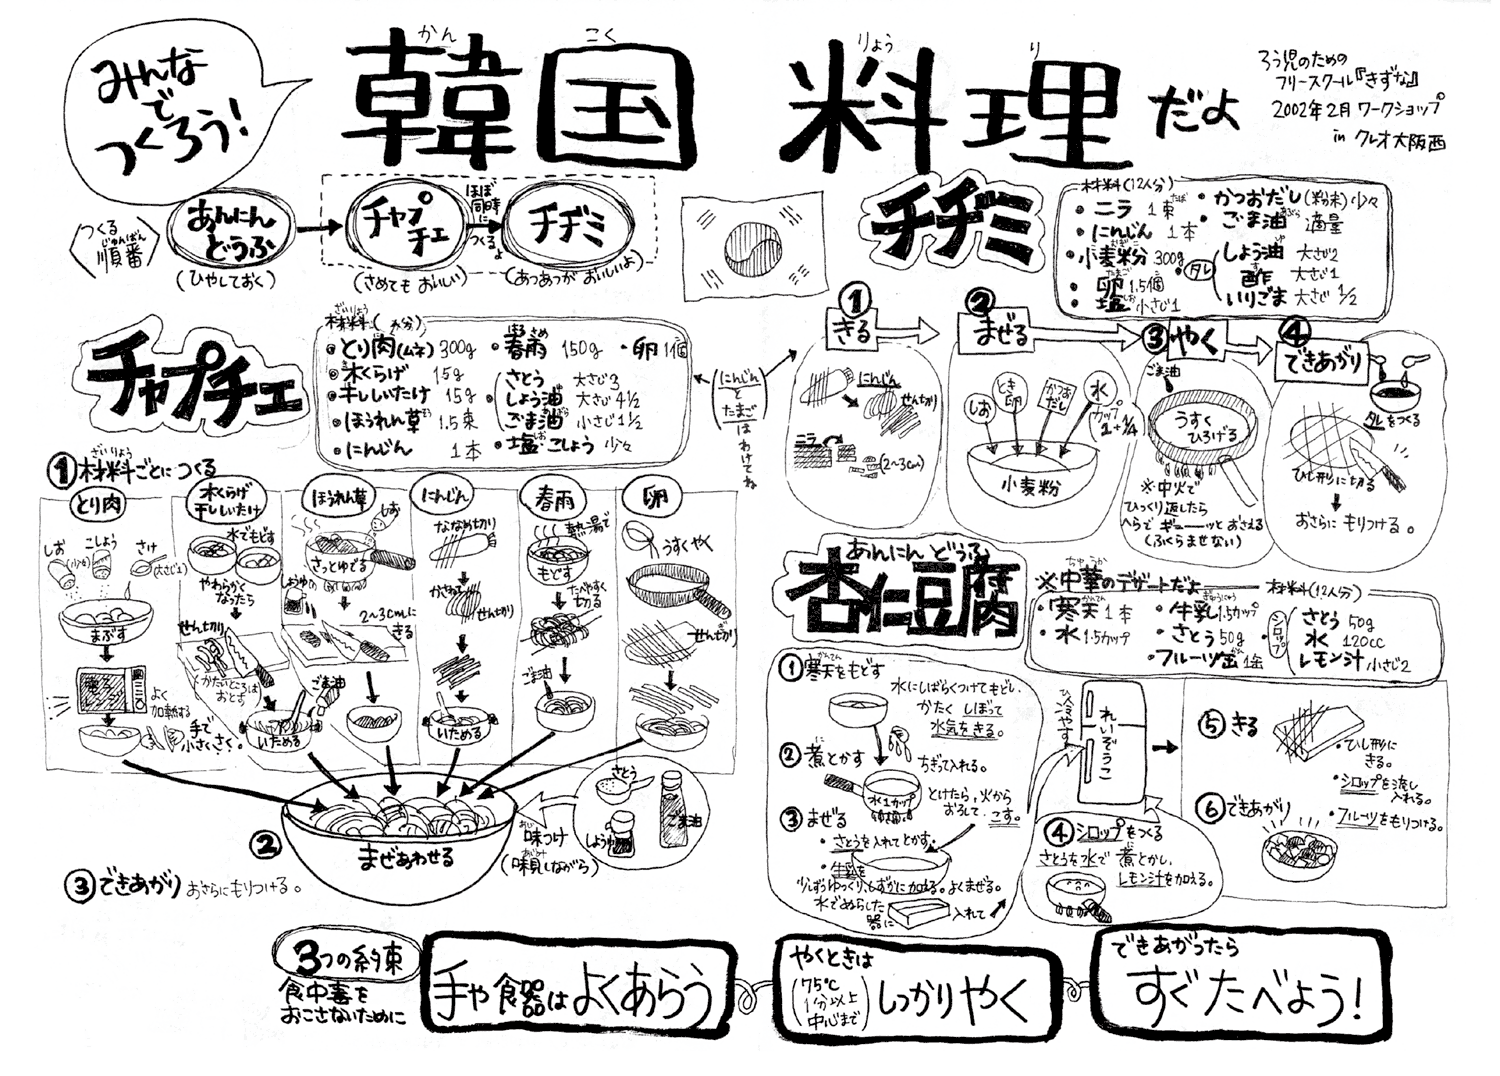 みんな
で
つくろう!
かん こく りょう り
韓国料理だよ
ろう児のための
フリースクール『きずな』
2002年2月 ワークショップ
in クレオ大阪西
つくる
じゅんばん
順番
あんにん
どうふ
(ひやしておく)
チャプ
チェ
(さめても おいしい)
ほぼ
同時
に
つくるよ
チヂミ
(あつあつが おいしいよ)
チャプチェ
ざいりょう
とり肉(ムネ) 300g
木くらげ 15g
干ししいたけ 15g
ほうれん草 1.5束
にんじん 1本
春雨 150g
卵 1個
さとう 大さじ3
しょう油 大さじ4½
ごま油 小さじ1½
塩こしょう 少々
(にんじん
と
たまご
は
わけてね
①材料ごとにつくる
とり肉
しお
こしょう
さけ
(大さじ1)
まぶす
電子レンジ
よく
加熱する
手で
小さくさく。
木くらげ
干ししいたけ
水でもどす
やわらかく
なったら
せんぎり
(かたいところは
おとす
いためる
ほうれん草
しお
さっとゆでる
しょうゆ
2~3cmに
きる
ごま油
にんじん
ななめ切り
かさねて
せんぎり
いためる
春雨
熱湯で
もどす
たべやすく
切る
ごま油
卵
うすくやく
せんぎり
②
まぜあわせる
味つけ
(味見しながら)
さとう
しょうゆ
ごま油
③できあがり おさらにもりつける。
チヂミ
材料(12人分)
ニラ 1束
にんじん 1本
小麦粉 300g
卵 1.5個
塩 小さじ1
かつおだし(粉末)少々
ごま油 適量
タレ
しょう油 大さじ2
酢 大さじ1
いりごま 大さじ1/2
① きる
にんじん
せんぎり
ニラ
(2~3cm)
② まぜる
しお
とき
卵
かつお
だし
水
カップ
1+1/4
小麦粉
③ やく
ごま油
うすく
ひろげる
※中火で
ひっくり返したら
へらで ギューーッと おさえる
(ふくらませない)
④ できあがり
タレをつくる
ひし形に切る
おさらに もりつける。
あんにん どうふ
杏仁豆腐
※中華のデザートだよ
材料(12人分)
寒天 1本
水 1.5カップ
牛乳 1.5カップ
さとう 50g
フルーツ缶 1缶
シロップ
さとう 50g
水 120cc
レモン汁 小さじ2
①寒天をもどす
水にしばらくつけてもどし、
かたく しぼって
水気をきる。
②煮とかす
ちぎって入れる。
水1カップ
とけたら、火から
おろして、こす。
③まぜる
・さとうを入れてとかす。
・牛乳を
少しずつゆっくり、しずかに加える。よくまぜる。
水でぬらした
器に
入れて
冷やす
れいぞうこ
④シロップをつくる
さとうを水で 煮とかし、
レモン汁を加える。
⑤きる
・ひし形に
きる。
・シロップを流し
入れる。
⑥できあがり
・フルーツをもりつける。
3つの約束
食中毒を
おこさないために
手や食器は よくあらう
やくときは
(75℃
1分以上
中心まで)
しっかりやく
できあがったら
すぐたべよう!